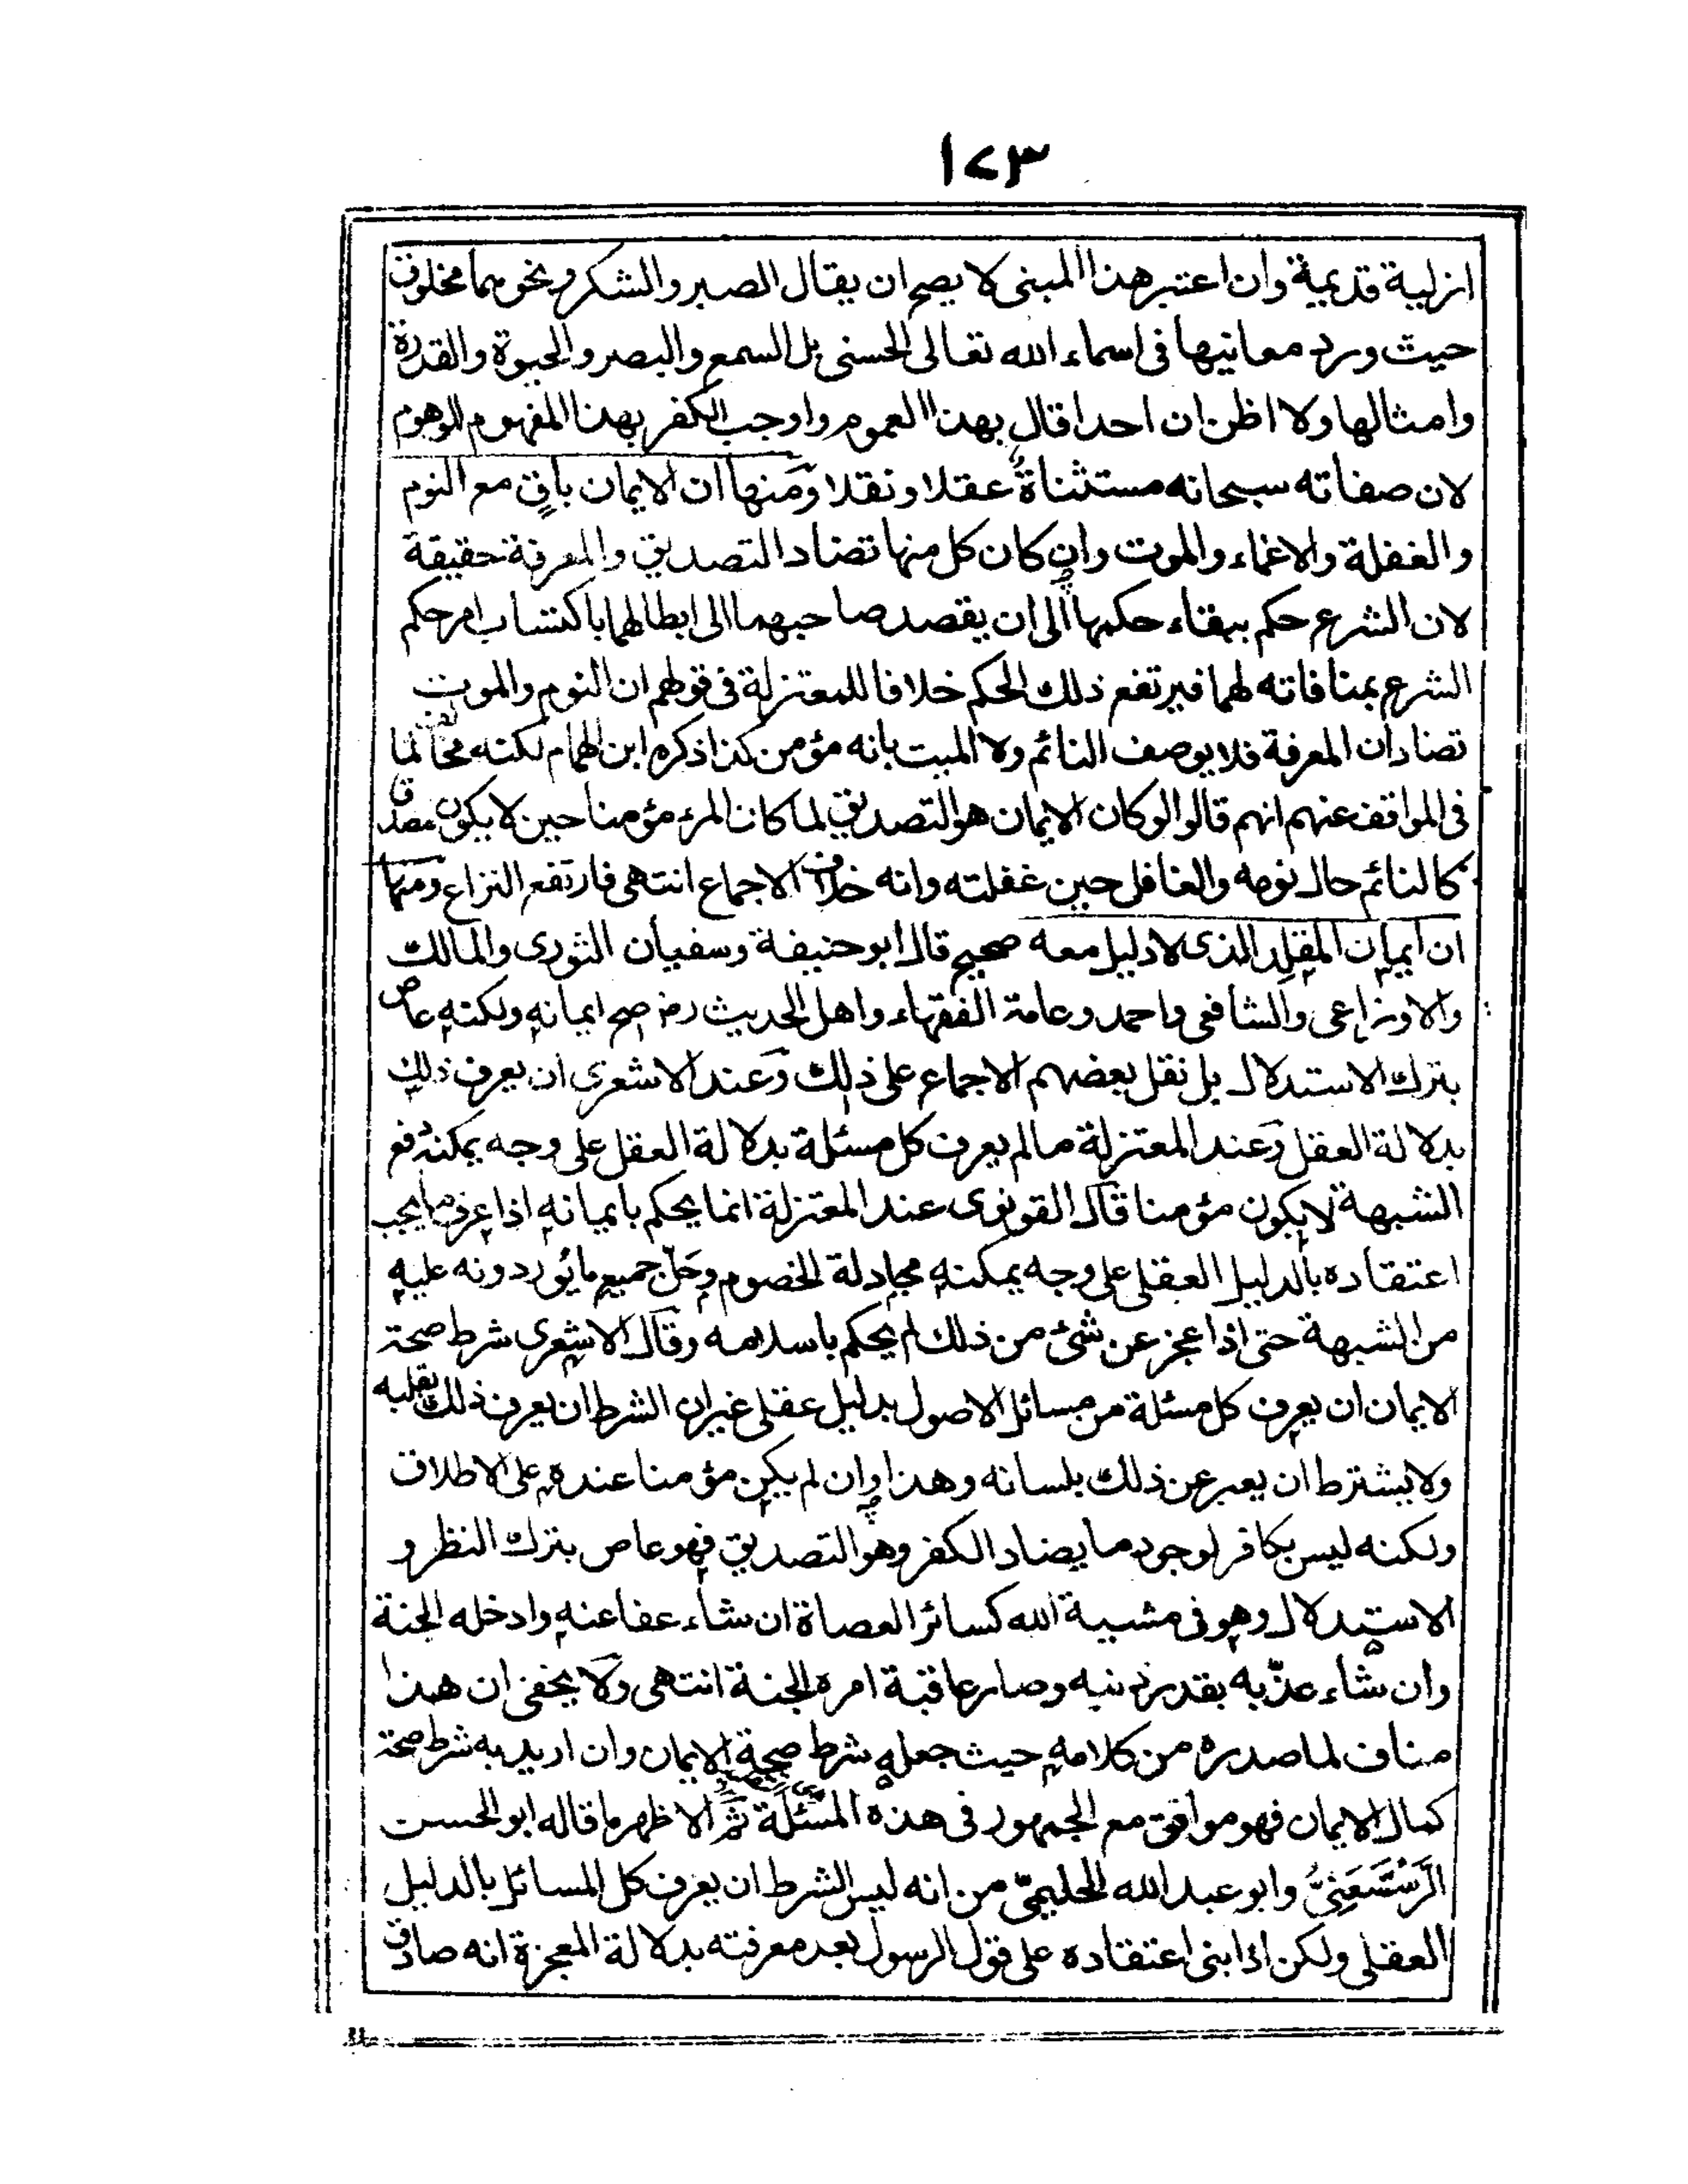 ١٧٣
ازلية قديمة وان اعتبر هذا المبنى لا يصح ان يقال الصبر والشكر ونحوهما مخلوق
حيث ورد معانيها فى اسماء الله تعالى الحسنى بل السمع والبصر والحيوة والقدرة
وامثالها ولا اظن ان احدا قال بهذا العموم واوجب الكفر بهذا المفهوم الموهوم
لان صفاته سبحانه مستثناة عقلا ونقلا ومنها ان الايمان باق مع النوم
والغفلة والاغماء والموت وان كان كل منها تضاد التصديق والمعرفة حقيقة
لان الشرع حكم ببقاء حكمها الى ان يقصد صاحبهما الى ابطالهما باكتساب امر حكم
الشرع بمنافاته لهما فيرتفع ذلك الحكم خلافا للمعتزلة فى قولهم ان النوم والموت
تضادان المعرفة فلا يوصف النائم ولا الميت بانه مؤمن كذا ذكره ابن الهمام لكنه مخالف لما
فى المواقف عنهم انهم قالوا لو كان الايمان هو التصديق لما كان المرء مؤمنا حين لا يكون مصدقا
كالنائم حال نومه والغافل حين غفلته وانه خلاف الاجماع انتهى فارتفع النزاع ومنها
ان ايمان المقلد الذى لا دليل معه صحيح قال ابو حنيفة وسفيان الثورى والمالك
والاوزاعى والشافعى واحمد وعامة الفقهاء واهل الحديث رض صح ايمانه ولكنه عاص
بترك الاستدلال بل نقل بعضهم الاجماع على ذلك وعند الاشعرى ان يعرف ذلك
بدلالة العقل وعند المعتزلة ما لم يعرف كل مسئلة بدلالة العقل على وجه يمكنه دفع
الشبهة لا يكون مؤمنا قال القونوى عند المعتزلة انما يحكم بايمانه اذا عرف ما يجب
اعتقاده بالدليل العقلى على وجه يمكنه مجادلة الخصوم وحلّ جميع ما يوردونه عليه
من الشبهة حتى اذا عجز عن شئ من ذلك لم يحكم باسلامه وقال الاشعرى شرط صحة
الايمان ان يعرف كل مسئلة من مسائل الاصول بدليل عقلى غير ان الشرط ان يعرف ذلك بقلبه
ولا يشترط ان يعبر عن ذلك بلسانه وهذا وان لم يكن مؤمنا عنده على الاطلاق
ولكنه ليس بكافر لوجود ما يضاد الكفر وهو التصديق فهو عاص بترك النظر و
الاستدلال وهو فى مشيية الله كسائر العصاة ان شاء عفا عنه وادخله الجنة
وان شاء عذّبه بقدر ذنبه وصار عاقبة امره الجنة انتهى ولا يخفى ان هذا
مناف لما صدره من كلامه حيث جعله شرط صحة الايمان وان اريد به شرط صحة
كمال الايمان فهو موافق مع الجمهور فى هذه المسئلة ثم الاظهر ما قاله ابو الحسن
الرستغفنى وابو عبد الله الحليمى من انه ليس الشرط ان يعرف كل المسائل بالدليل
العقلى ولكن اذا بنى اعتقاده على قول الرسول بعد معرفته بدلالة المعجزة انه صادق